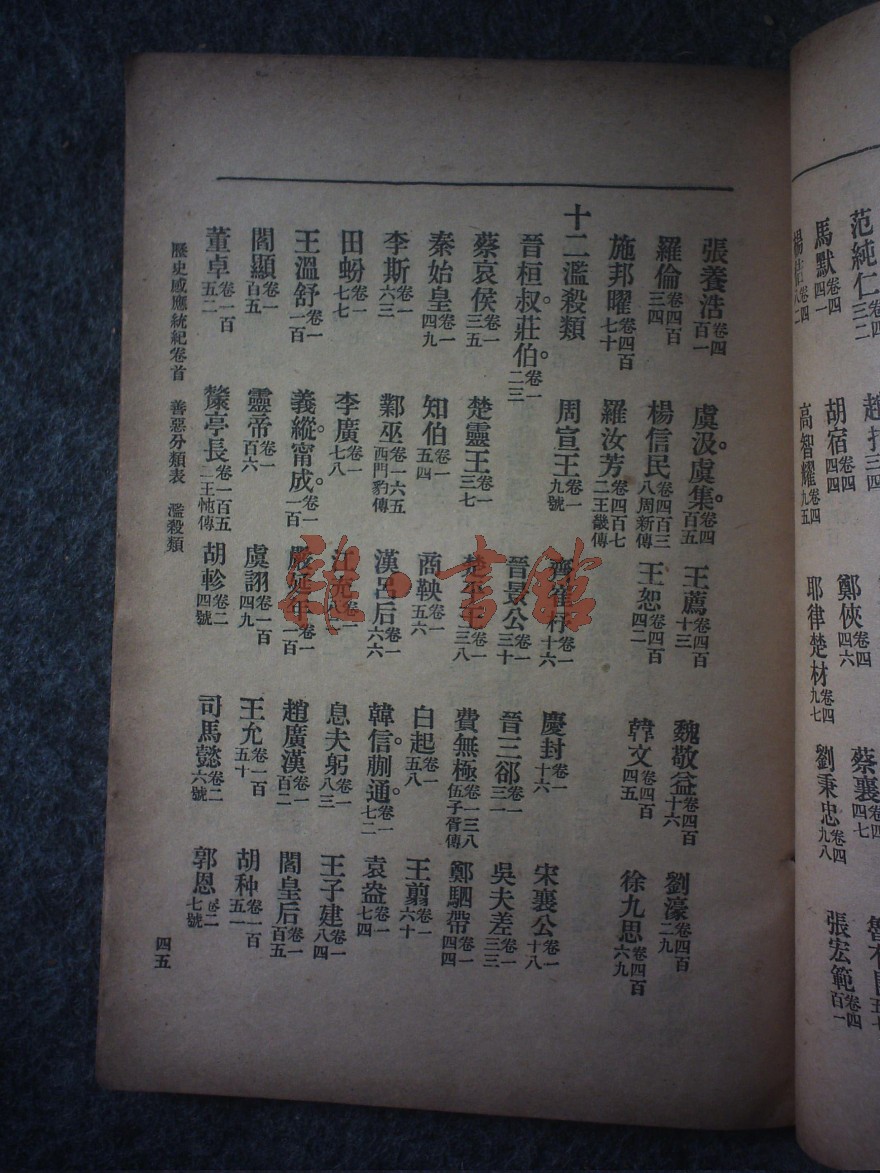 范純仁卷四三二
馬默卷四四一
胡宿卷四四四
鄭俠卷四四六
蔡襄卷四四七
高智耀卷四九五
耶律楚材卷四九七
劉秉忠卷四九八
張宏範卷四百一
張養浩卷四百一 虞汲。虞集。卷四百五 王薦卷四百十三 魏敬益卷四百十六 劉濠卷四百二九
羅倫卷四百三四 楊信民卷四百三八周新傳 王恕卷四百四二 韓文卷四百四五 徐九思卷四百六九
施邦曜卷四百七十 羅汝芳卷四百七二王畿傳
十二濫殺類 周宣王卷一九號 齊崔杼卷一十六 慶封卷一十六 宋襄公卷一十八
晉桓叔。莊伯。卷一二三 晉景公卷一三十 晉三郤卷一三二 吳夫差卷一三三
蔡哀侯卷一三五 楚靈王卷一三七 楚平王卷一三八 費無極卷一三八伍子胥傳 鄭駟帶卷一四四
秦始皇卷一四九 知伯卷一五四 商鞅卷一五六 白起卷一五八 王翦卷一六十
李斯卷一六三 鄴巫卷一六五西門豹傳 漢呂后卷一六六 韓信。蒯通。卷一七二 袁盎卷一七四
田蚡卷一七七 李廣卷一七八 江充卷一八一 息夫躬卷一八三 王子建卷一八四
王溫舒卷一一百 義縱。甯成。卷一一百 嚴延年卷一一百 趙廣漢卷一百二 閻皇后卷一百五
閻顯卷一百五 靈帝卷一百六 虞詡卷一百四九 王允卷一百五十 胡种卷一百五一
董卓卷一百五二 斄亭長卷一百五二王忳傳 胡軫卷二四號 司馬懿卷二六號 郭恩卷二七號
歷史感應統紀卷首 善惡分類表 濫殺類 四五
雅·書館